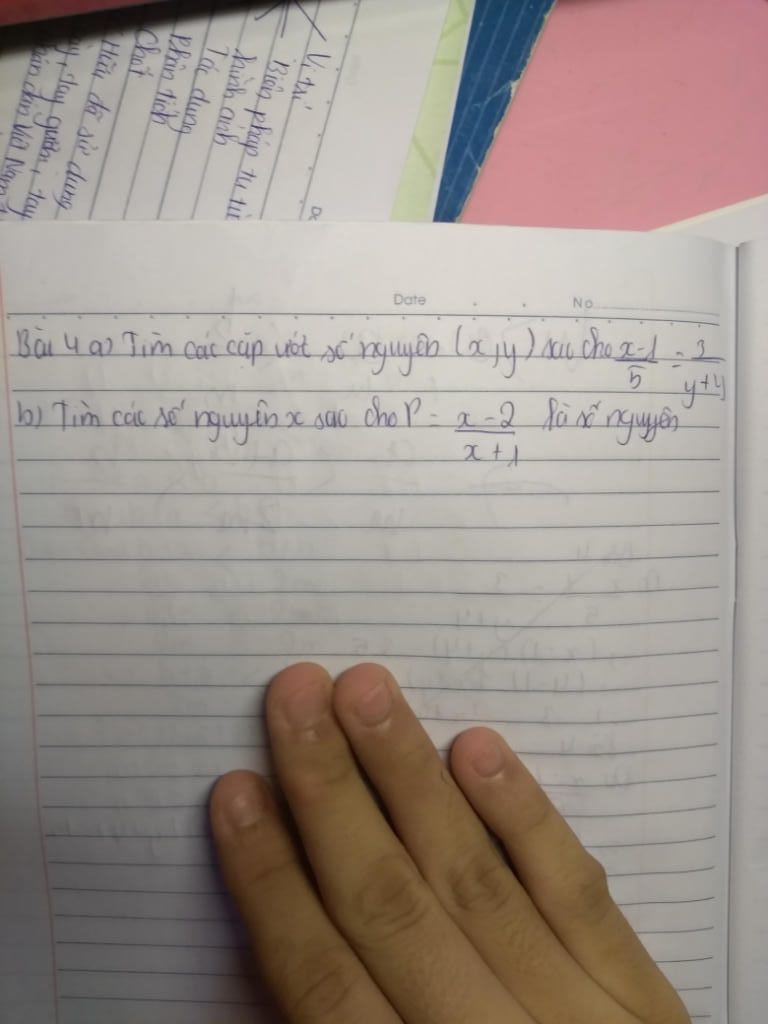 Vị trí
Biện pháp tu từ
hình ảnh
Tác dụng
Phân tích
Chốt
Hữu đã sử dụng
, tay quân, tay
nhân dân Việt Nam
Date No
Bài 4 a) Tìm các cặp số nguyên (x,y) sao cho x-1/5 = 3/y+4
b) Tìm các số nguyên x sao cho P = x-2/x+1 là số nguyên